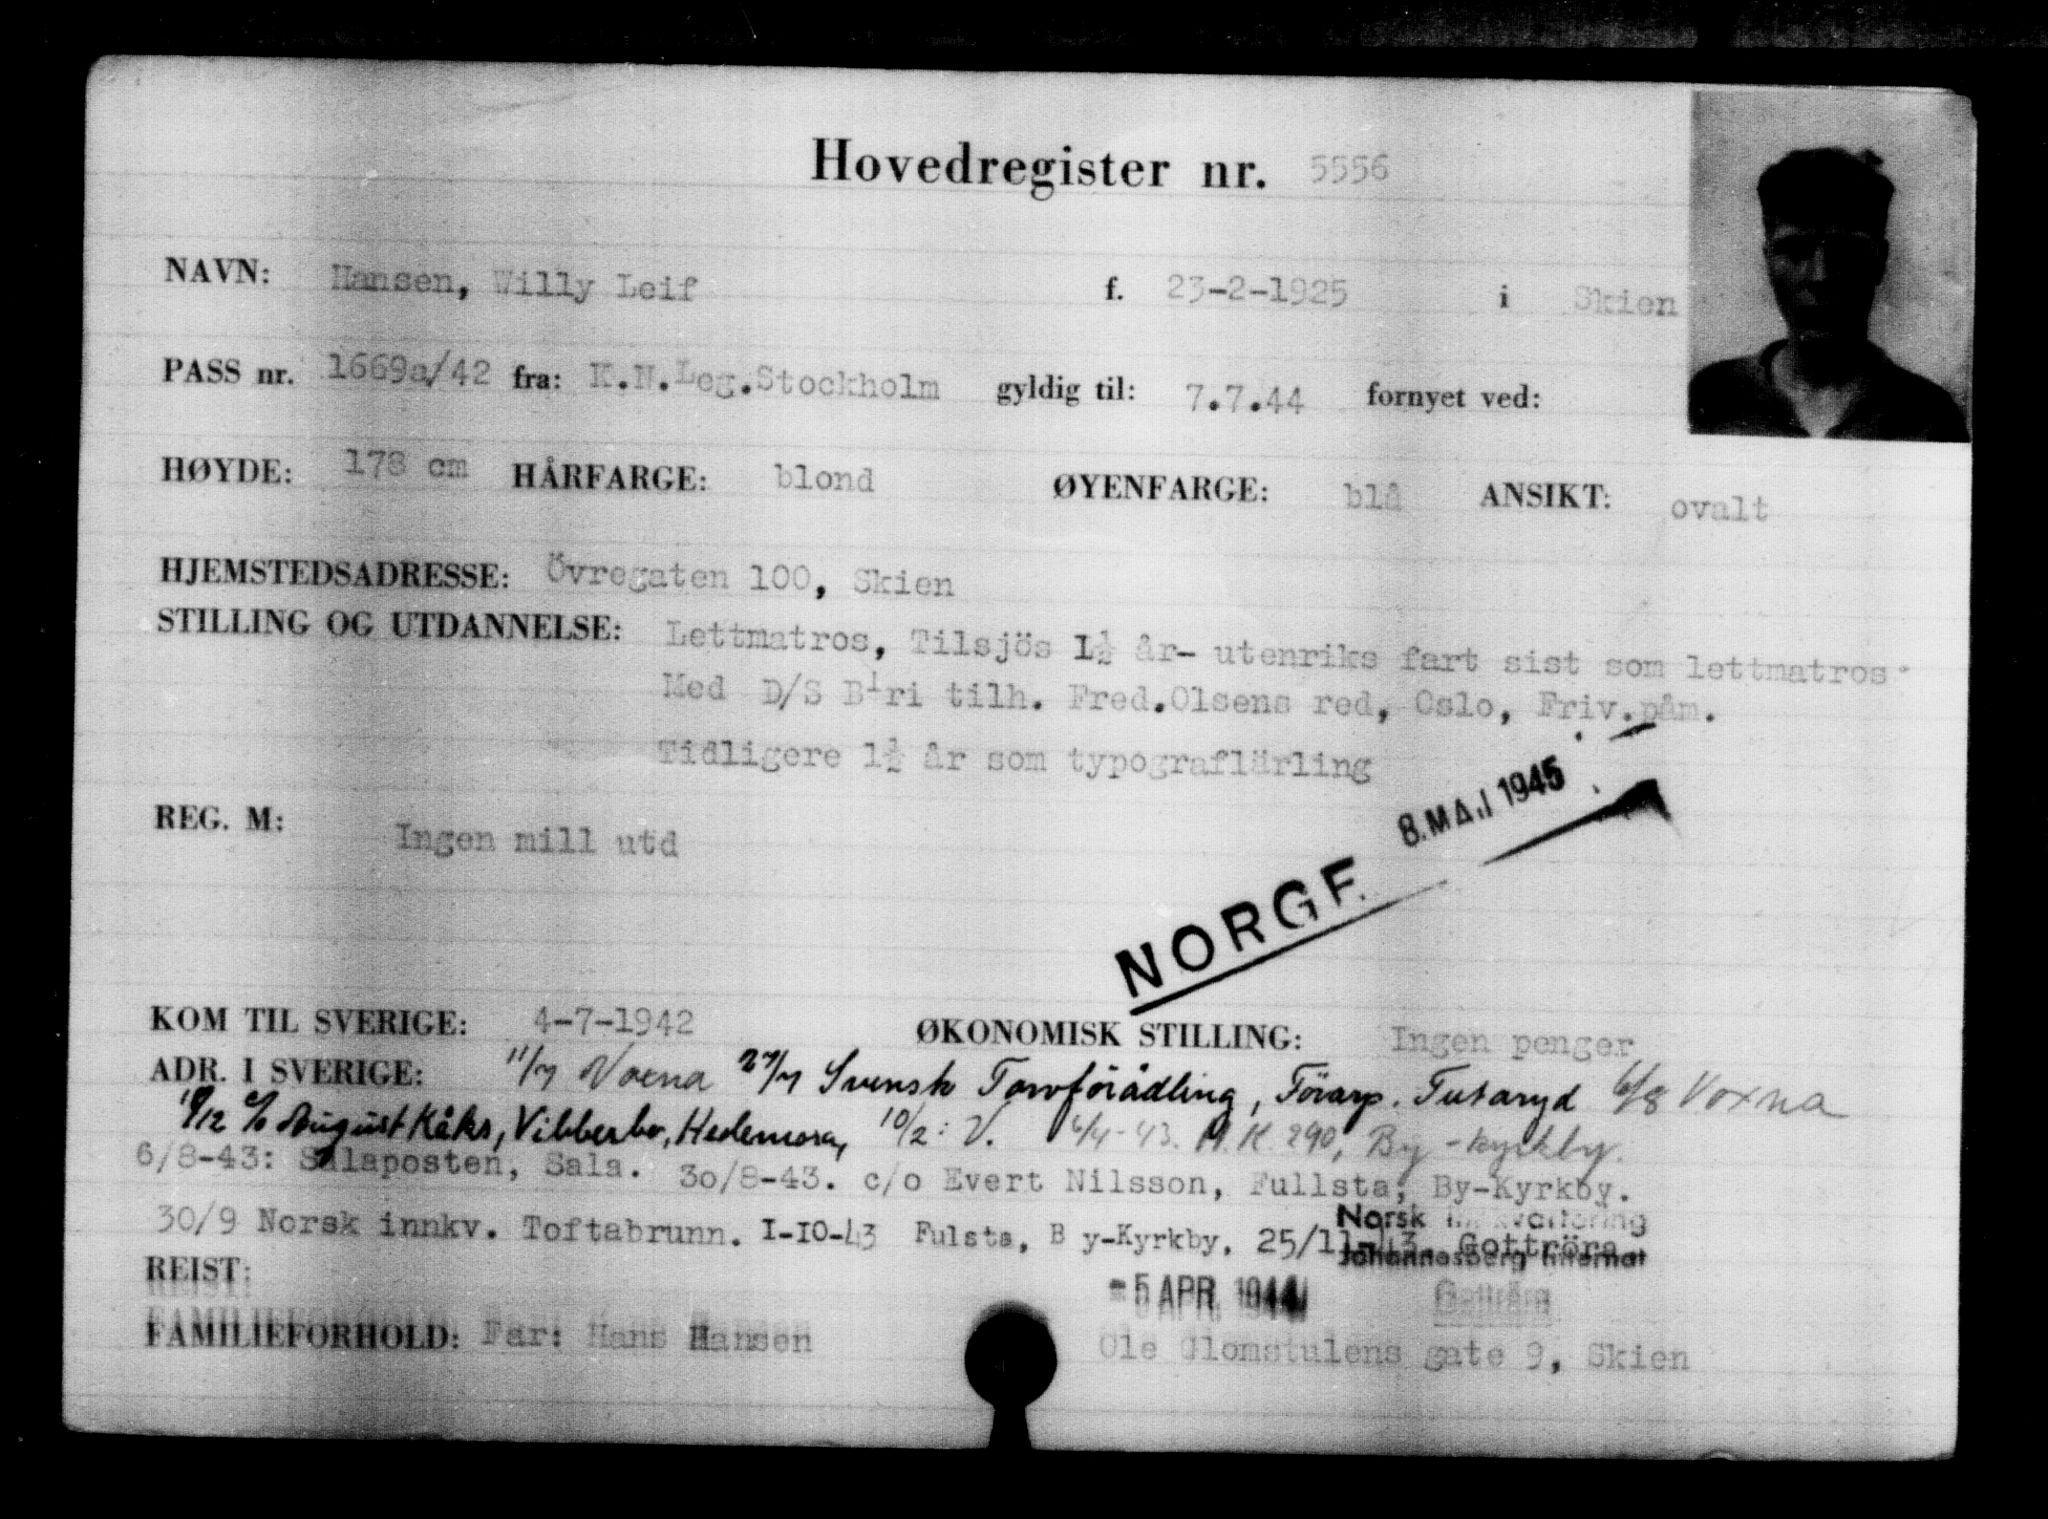 Hovedregister nr. 5556
NAVN: Hansen, Willy Leif f. 23-2-1925 i Skien
PASS nr. 1669a/42 fra: K.N.Leg.Stockholm gyldig til: 7.7.44 fornyet ved:
HØYDE: 178 cm HÅRFARGE: blond ØYENFARGE: blå ANSIKT: ovalt
HJEMSTEDSADRESSE: Övregaten 100, Skien
STILLING OG UTDANNELSE: Lettmatros, Tilsjös 1½ år- utenriks fart sist som lettmatros.
Med D/S Biri tilh. Fred.Olsens red, Oslo, Friv.påm.
Tidligere 1½ år som typograflärling
8. MAJ 1945
REG. M: Ingen mill utd
NORGE
KOM TIL SVERIGE: 4-7-1942 ØKONOMISK STILLING: Ingen penger
ADR. I SVERIGE: 11/7 Voxna 27/7 Svensk Torvförädling, Förarp. Tutaryd 6/8 Voxna
/12 c/o August Kåks, Vibberbo, Hedemora, 10/2: V. 6/4-43. H.K. 290, By-Kyrkby.
6/8-43: Salaposten, Sala. 30/8-43. c/o Evert Nilsson, Fullsta, By-Kyrkby.
30/9 Norsk innkv. Toftabrunn. 1-10-43 Fulsta, B y-Kyrkby. 25/11-43. Gottröra
Norsk Innkvartering
Johannesberg Internat
Gottröra
REIST: -5 APR. 1944
FAMILIEFORHOLD: Far: Hans Hansen Ole Glomstulens gate 9, Skien